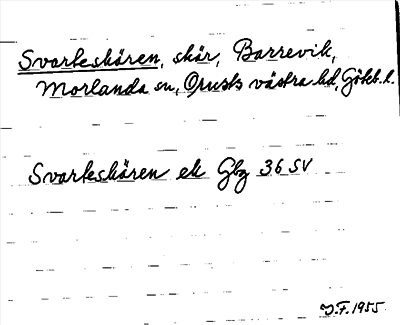 Svarteskären, skär, Barrevik,
Morlanda sn, Orusts västra hd, Göteb. l.
Svarteskären ek Gbg 36 SV
J.F. 1955